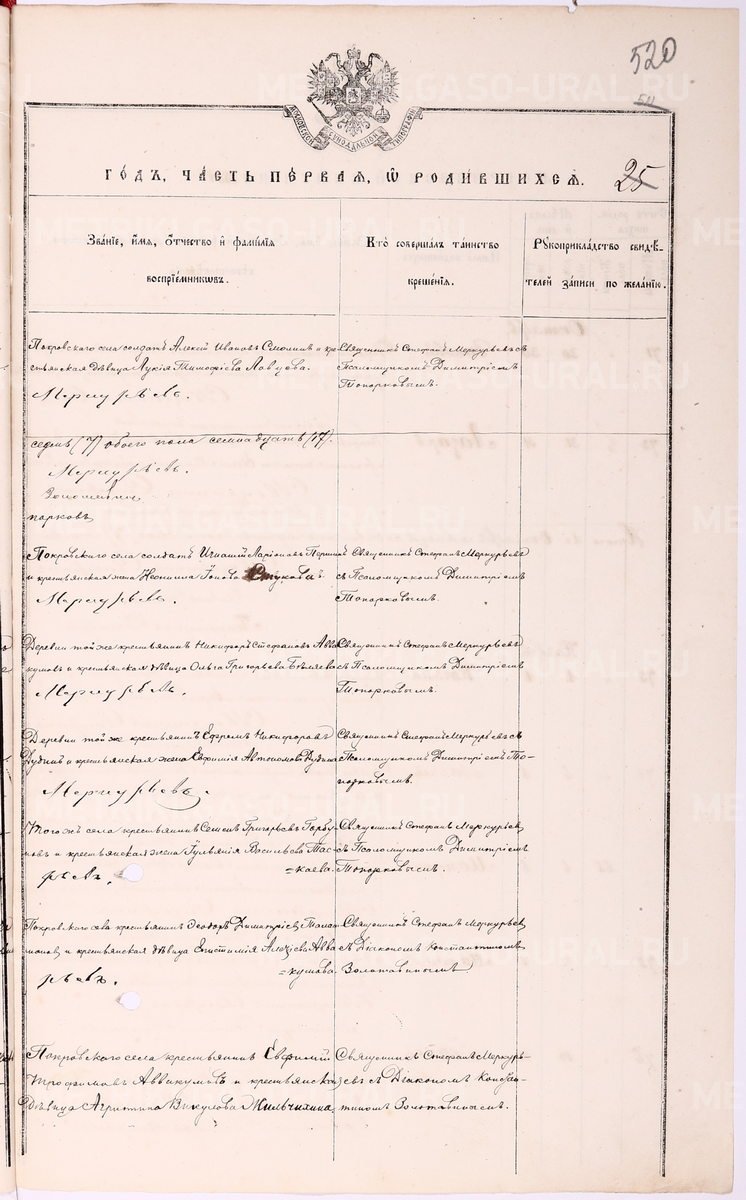 520
511
МОСКОВСКОЙ СѴНОДАЛЬНОЙ ТИПОГРАФІИ
ГОДЪ, ЧАСТЬ ПЕРВАЯ, Ѡ РОДИВШИХСЯ. 25
Званіе, имя, отчество и фамилія
воспріемниковъ.
Кто совершалъ таинство
крещенія.
Рукоприкладство свидѣ-
телей записи по желанію.
Покровскаго села солдатъ Алексій Ивановъ Смолинъ и кре-
стьянская дѣвица Лукія Тимофіева
Меркурьевъ.
Священникъ Стефанъ Меркурьевъ съ
Псаломщикомъ Димитріемъ
Топорковымъ.
седмь (7) обоего пола семнадцать (17).
Меркурьевъ.
порковъ
Покровскаго села солдатъ Игнатій Ларіоновъ Першинъ
и крестьянская жена Неонилла Іонова Стукова
Меркурьевъ.
Священникъ Стефанъ Меркурьевъ
съ Псаломщикомъ Димитріемъ
Топорковымъ.
Деревни той же крестьянинъ Никифоръ Стефановъ Авва-
кумовъ и крестьянская дѣвица Ольга Григорьева Бѣляева
Меркурьевъ.
Священникъ Стефанъ Меркурьевъ
съ Псаломщикомъ Димитріемъ
Топорковымъ.
Деревни той же крестьянинъ Ефремъ Никифоровъ
и крестьянская жена Евфимія Автономова
Меркурьевъ.
Священникъ Стефанъ Меркурьевъ съ
Псаломщикомъ Димитріемъ То-
порковымъ.
Того жъ села крестьянинъ Семенъ Григорьевъ Горбу-
новъ и крестьянская жена Іуліанія Васильева Тос-
=каева.
рьевъ.
Священникъ Стефанъ Меркурьевъ
съ Псаломщикомъ Димитріемъ
Топорковымъ.
Покровскаго села крестьянинъ Ѳеодоръ Димитріевъ
и крестьянская дѣвица Епистимія Алексіева Авва-
=кумова.
рьевъ.
Священникъ Стефанъ Меркурьевъ
съ Діакономъ Константиномъ
Золотавинымъ
Покровскаго села крестьянинъ Евфимій
Трофимовъ Аввакумовъ и крестьянская
дѣвица Агриппина Викулова Жильчихина
Священникъ Стефанъ Меркурь-
евъ съ Діакономъ Констан-
тиномъ Золотавинымъ.